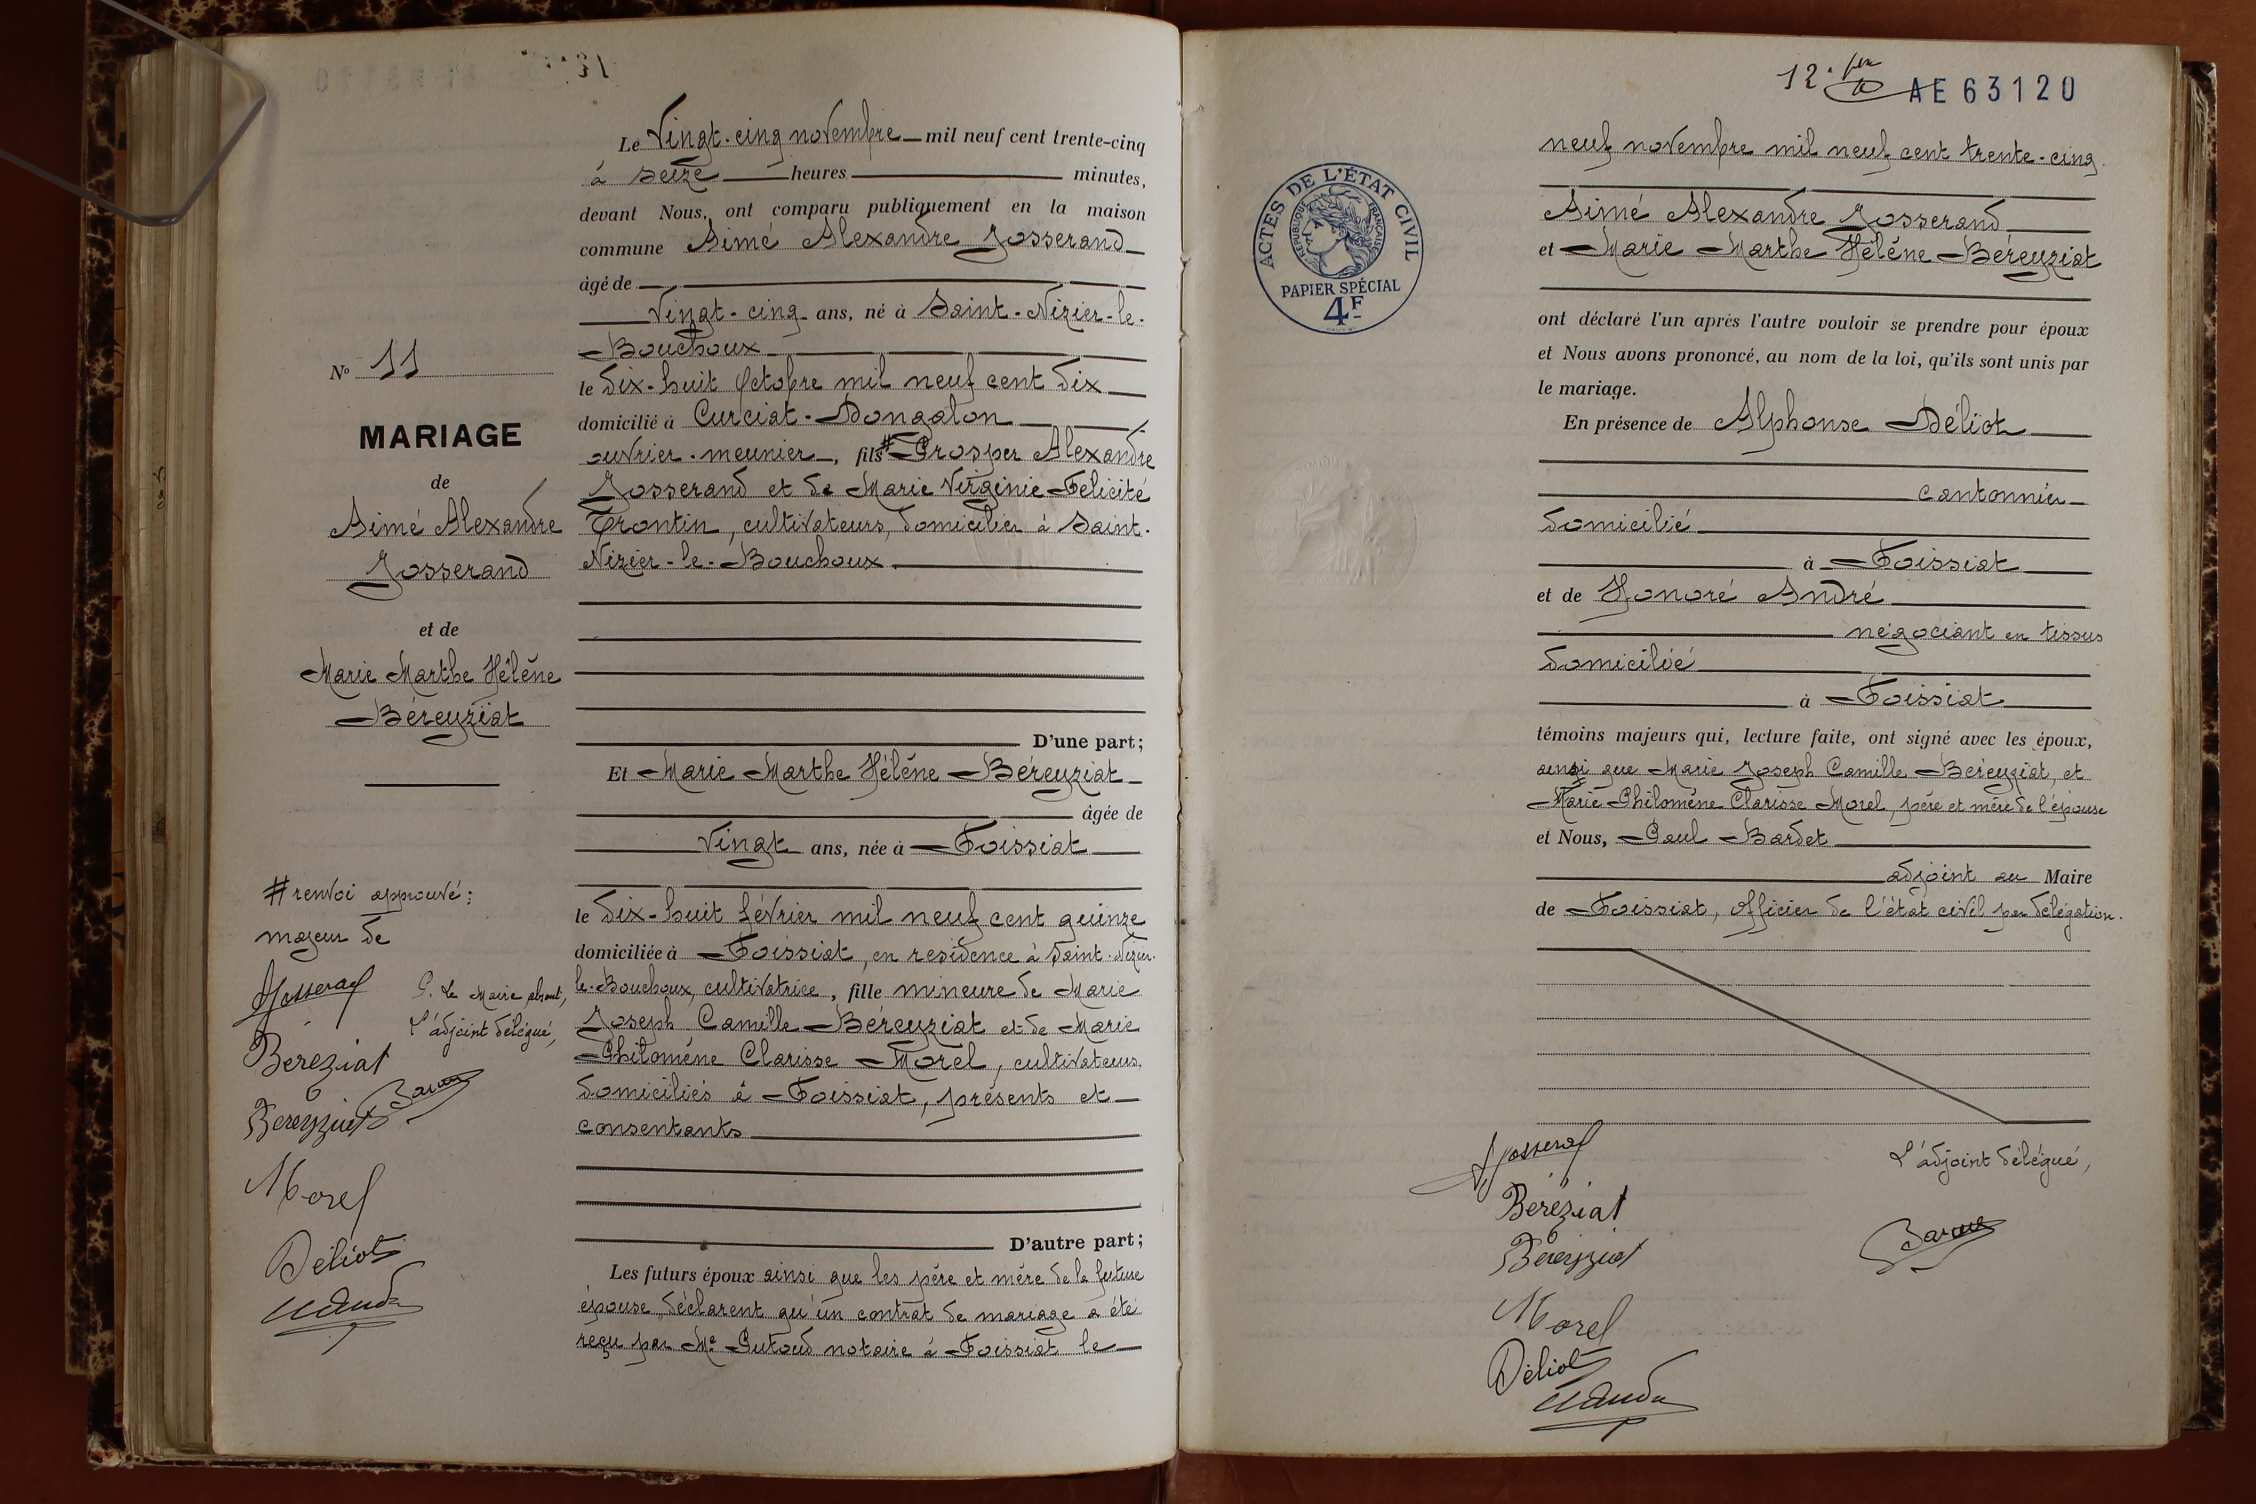 Le Vingt-cinq novembre mil neuf cent trente-cinq
à seize heures minutes,
devant Nous, ont comparu publiquement en la maison
commune Aimé Alexandre Josserand
âgé de
Vingt-cinq ans, né à Saint-Nizier-le-
Bouchoux
le dix-huit Octobre mil neuf cent dix
domicilié à Curciat-Dongalon
ouvrier-meunier, fils # Prosper Alexandre
Josserand et de Marie Virginie Félicité
Trontin, cultivateurs, domiciliés à Saint-
Nizier-le-Bouchoux
D'une part;
Et Marie Marthe Hélène Béreyziat
âgée de
Vingt ans, née à Foissiat
le dix-huit février mil neuf cent quinze
domiciliée à Foissiat, en residence à Saint-Nizier-
le-Bouchoux, cultivatrice, fille mineure de Marie
Joseph Camille Béreyziat et de Marie
Philomène Clarisse Morel, cultivateurs,
domiciliés à Foissiat, présents et
consentants
D'autre part;
Les futurs époux ainsi que les père et mère de la future
épouse déclarent qu'un contrat de mariage a été
reçu par Me Putoud notaire à Foissiat le
No 11
MARIAGE
de
Aimé Alexandre
Josserand
et de
Marie Marthe Hélène
Béreyziat
# renvoi approuvé:
majeur de
AJosserand
P. le Maire absent,
L'adjoint délégué,
Béréziat
Bereyziat
Morel
Déliot
12e
AE 63120
ACTES DE L'ÉTAT CIVIL
RÉPUBLIQUE FRANÇAISE
PAPIER SPÉCIAL
4F
neuf novembre mil neuf cent trente-cinq.
Aimé Alexandre Josserand
et Marie Marthe Hélène Béreyziat
ont déclaré l'un après l'autre vouloir se prendre pour époux
et Nous avons prononcé, au nom de la loi, qu'ils sont unis par
le mariage.
En présence de Alphonse Déliot
cantonnier
domicilié
à Foissiat
et de Honoré André
négociant en tissus
domicilié
à Foissiat
témoins majeurs qui, lecture faite, ont signé avec les époux,
ainsi que Marie Joseph Camille Béreyziat, et
Marie Philomène Clarisse Morel, père et mère de l'épouse
et Nous, Paul Bardet
adjoint au Maire
de Foissiat, officier de l'état civil par délégation.
AJosserand
L'adjoint délégué,
Béréziat
Béreyziat
Morel
Déliot